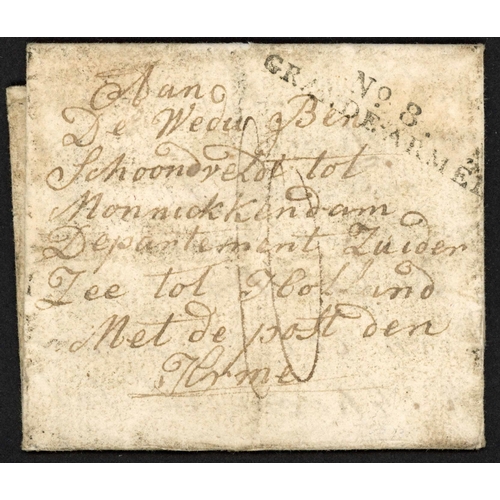 No 8.
GRANDE-ARMÉE
Aan
De Wedu Ber
Schoondveldt tot
Monnickkendam
Departement Zuider
Zee tot Hol and
Met de post den
Arme